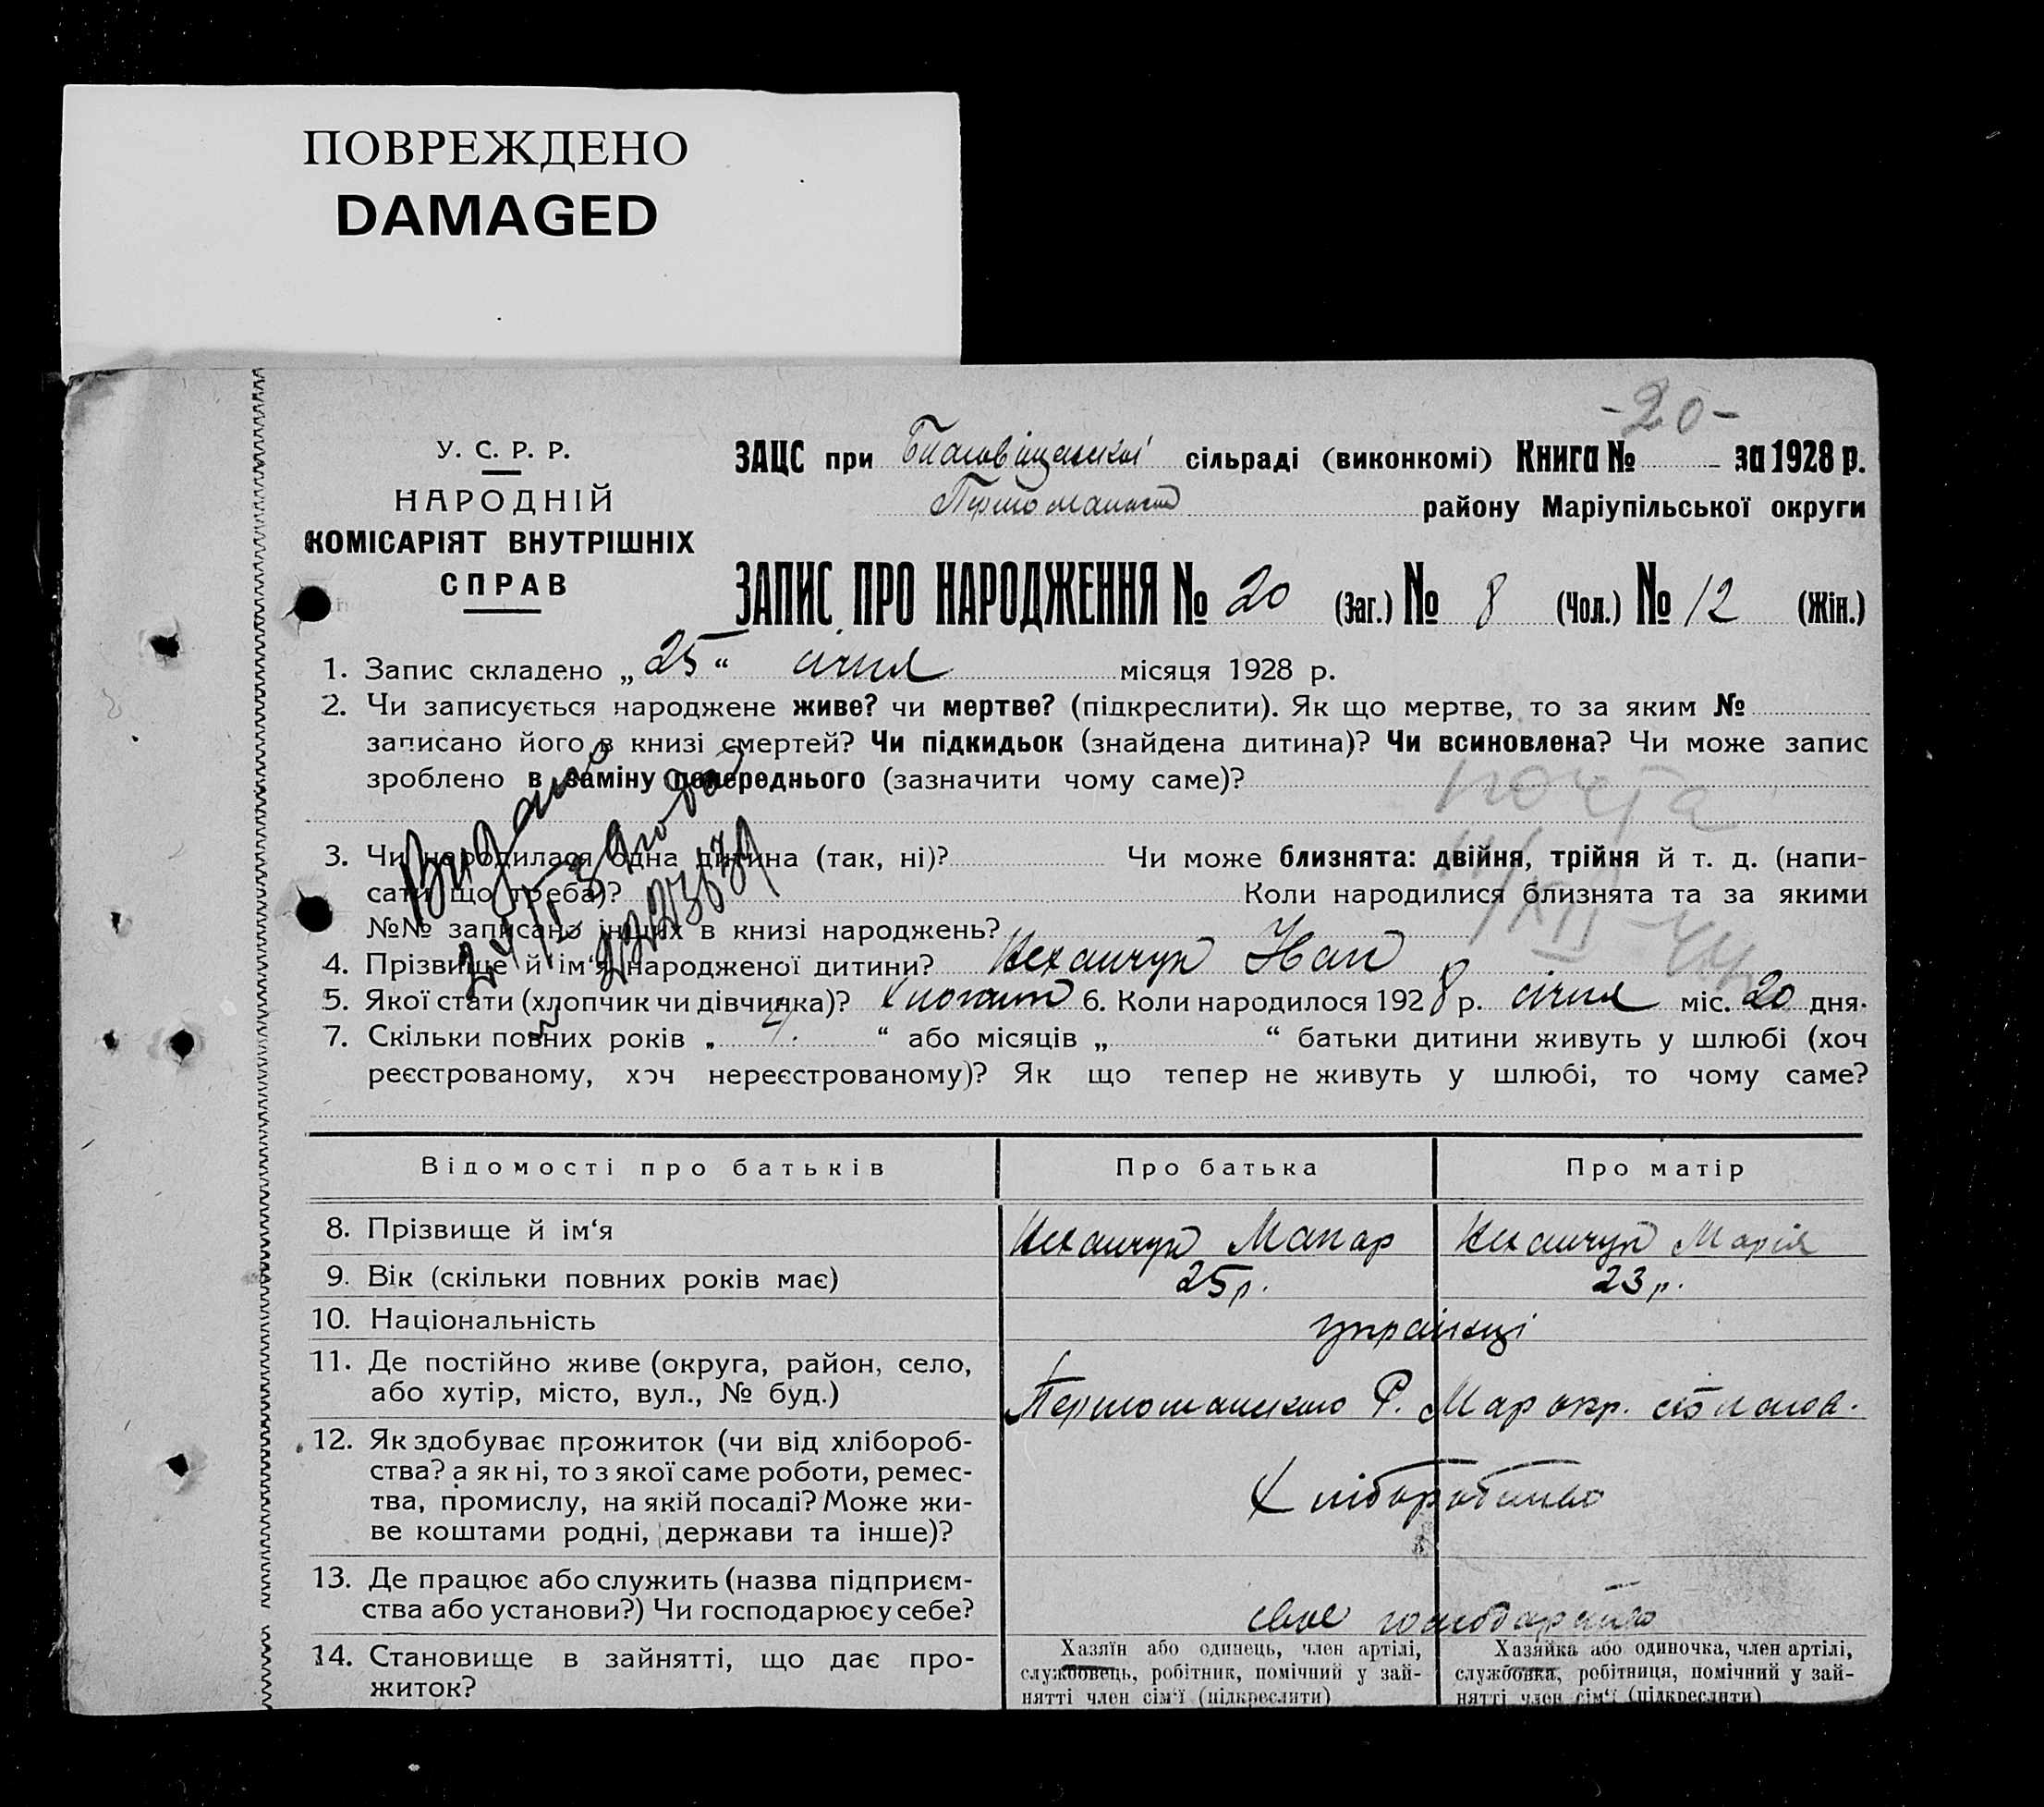 ПОВРЕЖДЕНО
DAMAGED
-20-
У. С. Р. Р.
НАРОДНІЙ
КОМІСАРІЯТ ВНУТРІШНІХ
СПРАВ
ЗАЦС при Благовіщенскі сільраді (виконкомі) Книга № за 1928 р.
району Маріупільської округи
ЗАПИС ПРО НАРОДЖЕННЯ № 20 (Заг.) № 8 (Чол.) № 12 (Жін.)
1. Запис складено „25“ січня місяця 1928 р.
2. Чи записується народжене живе? чи мертве? (підкреслити). Як що мертве, то за яким №
записано його в книзі смертей? Чи підкидьок (знайдена дитина)? Чи всиновлена? Чи може запис
зроблено в заміну попереднього (зазначити чому саме)?
почта
3. Чи народилася одна дитина (так, ні)? Чи може близнята: двійня, трійня й т. д. (напи-
сати що треба)? Коли народилися близнята та за якими
№№ записано інших в книзі народжень?
4. Прізвище й ім‘я народженої дитини? Іван
5. Якої стати (хлопчик чи дівчинка)? 6. Коли народилося 1928 р. січня міс. 20 дня.
7. Скільки повних років „ 4. “ або місяців „ “ батьки дитини живуть у шлюбі (хоч
реєстрованому, хоч нереєстрованому)? Як що тепер не живуть у шлюбі, то чому саме?
Видано
Відомості про батьків Про батька Про матір
8. Прізвище й ім‘я Макар Марія
9. Вік (скільки повних років має) 25 р. 23 р.
10. Національність українці
11. Де постійно живе (округа, район, село,
або хутір, місто, вул., № буд.) Р. Мар окр.
12. Як здобуває прожиток (чи від хлібороб-
ства? а як ні, то з якої саме роботи, ремес-
тва, промислу, на якій посаді? Може жи-
ве коштами родні, держави та інше)? Хліборобство
13. Де працює або служить (назва підприєм-
ства або установи?) Чи господарює у себе? своє господарство
14. Становище в зайнятті, що дає про-
житок?
Хазяїн або одинець, член артілі,
службовець, робітник, помічний у зай-
нятті член сім‘ї (підкреслити)
Хазяйка або одиночка, член артілі,
службовка, робітниця, помічний у зай-
нятті член сім‘ї (підкреслити)